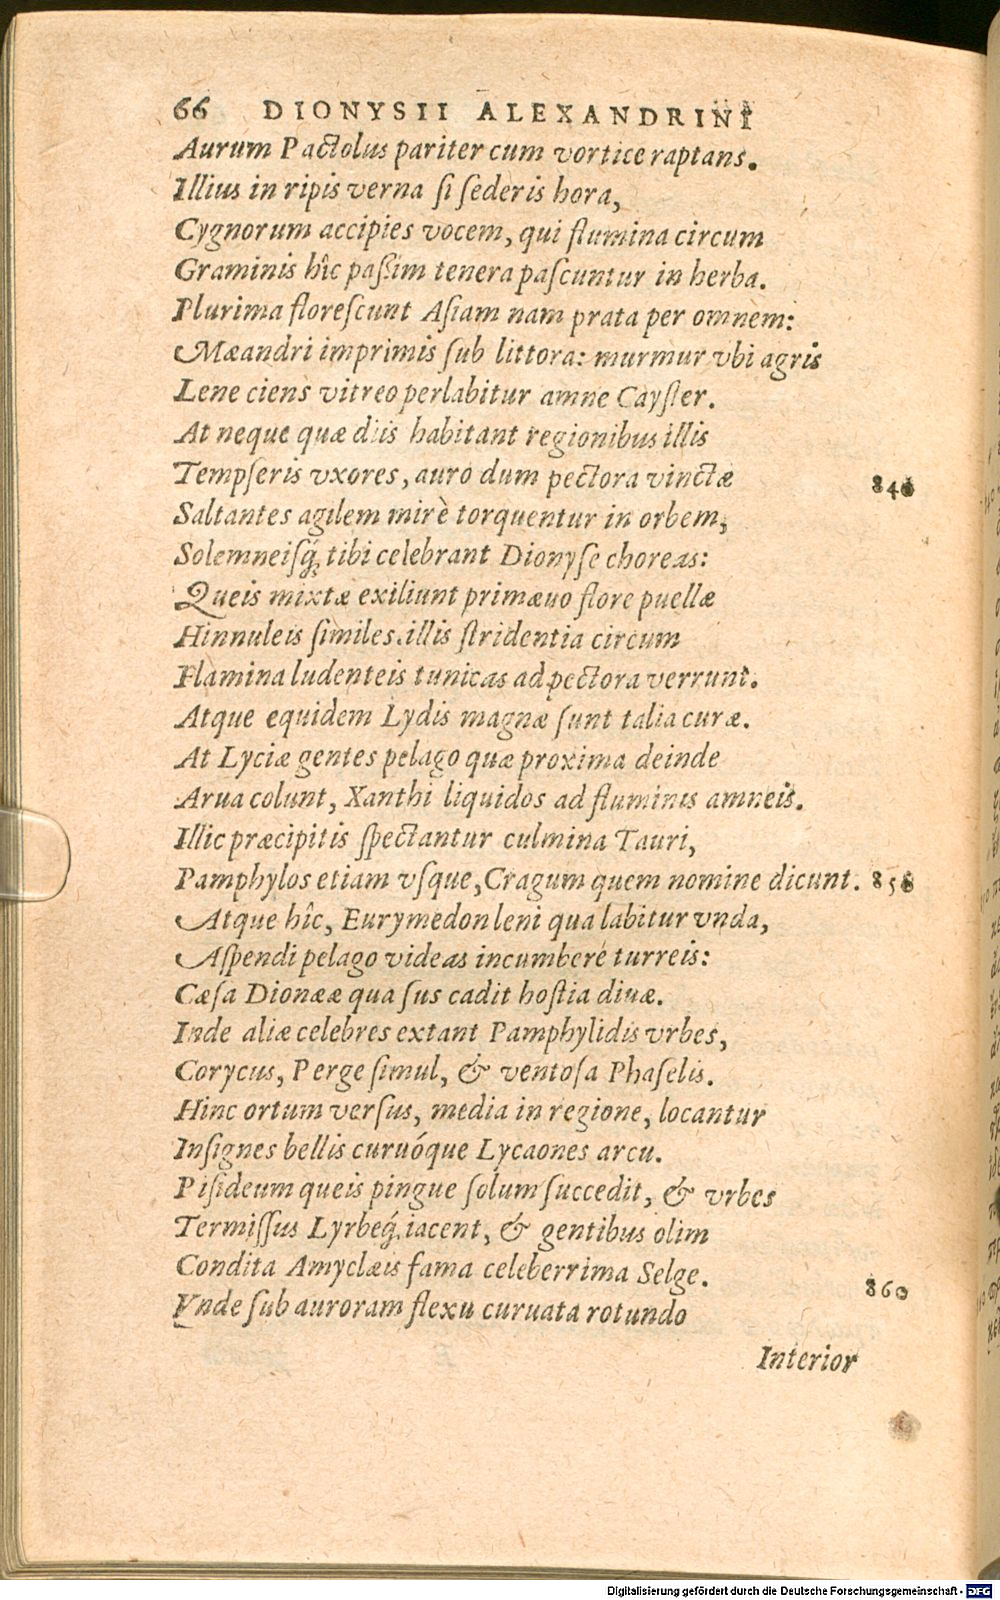 66 DIONYSII ALEXANDRINI
Aurum Pactolus pariter cum vortice raptans.
Illius in ripis verna ſi ſederis hora,
Cygnorum accipies vocem, qui flumina circum
Graminis hîc paſſim tenera paſcuntur in herba.
Plurima floreſcunt Aſiam nam prata per omnem:
Mæandri imprimis ſub littora: murmur vbi agris
Lene ciens vitreo perlabitur amne Cayſter.
At neque quæ diis habitant regionibus illis
Tempſeris vxores, auro dum pectora vinctæ 840
Saltantes agilem mirè torquentur in orbem,
Solemneiſq́; tibi celebrant Dionyſe choreas:
Queis mixtæ exiliunt primæuo flore puellæ
Hinnuleis ſimiles. illis ſtridentia circum
Flamina ludenteis tunicas ad pectora verrunt.
Atque equidem Lydis magnæ ſunt talia curæ.
At Lyciæ gentes pelago quæ proxima deinde
Arua colunt, Xanthi liquidos ad fluminis amneis.
Illic præcipitis ſpectantur culmina Tauri,
Pamphylos etiam vſque, Cragum quem nomine dicunt. 850
Atque hîc, Eurymedon leni qua labitur vnda,
Aſpendi pelago videas incumbere turreis:
Cæſa Dionææ qua ſus cadit hoſtia diuæ.
Inde aliæ celebres extant Pamphylidis vrbes,
Corycus, Perge ſimul, & ventoſa Phaſelis.
Hinc ortum verſus, media in regione, locantur
Inſignes bellis curuóque Lycaones arcu.
Piſideum queis pingue ſolum ſuccedit, & vrbes
Termiſſus Lyrbeq́; iacent, & gentibus olim
Condita Amyclæis fama celeberrima Selge. 860
Vnde ſub auroram flexu curuata rotundo
Interior
Digitalisierung gefördert durch die Deutsche Forschungsgemeinschaft - DFG